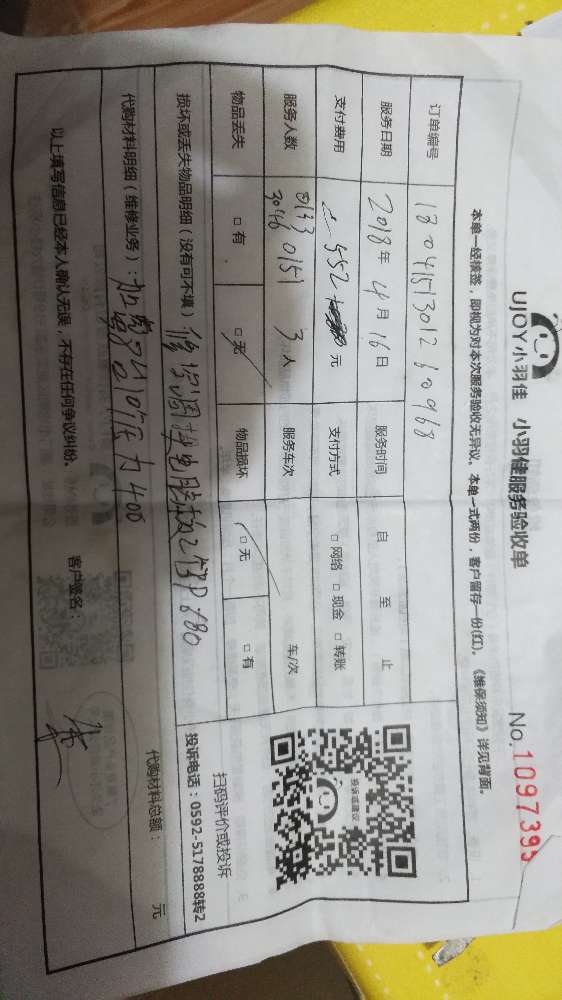 UJOY小羽佳 小羽佳服务验收单
No.1097395
本单一经接签，即视为对本次服务验收无异议。本单一式两份，客户留存一份(红)。《维保须知》详见背面。
订单编号 180415130126 0968
服务日期 2018年4月16日 服务时间 自 至 止
支付费用 552 元 支付方式 □网络 □现金 □转账
服务人数 3046 0151 3人 服务车次 车/次
物品丢失 □有 □无 物品损坏 □无 □有
投诉或建议
扫码评价或投诉
投诉电话：0592-5178888转2
损坏或丢失物品明细（没有可不填）
680
代购材料明细（维修业务）： 400
代购材料总额： 元
以上填写信息已经本人确认无误，不存在任何争议纠纷。 客户签名：